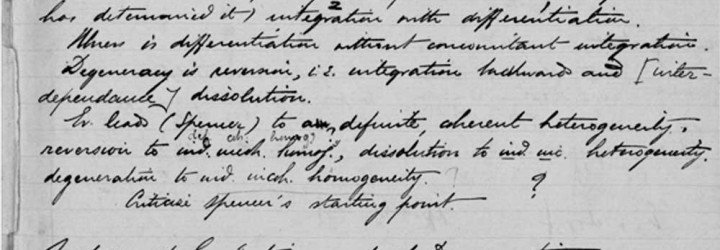 has determined it) integration with differentiation.
2
Illness is differentiation without concomitant integration.
Degeneracy is reversion, i.e. integration backwards and [inter-
dependance] dissolution.
Ev. leads (Spencer) to a definite, coherent heterogeneity,
def. coh. homog?
reversion to ind. incoh. homog., dissolution to ind. inc. heterogeneity.
degeneration to ind. incoh. homogeneity. ? ?
Criticise Spencer's starting point.